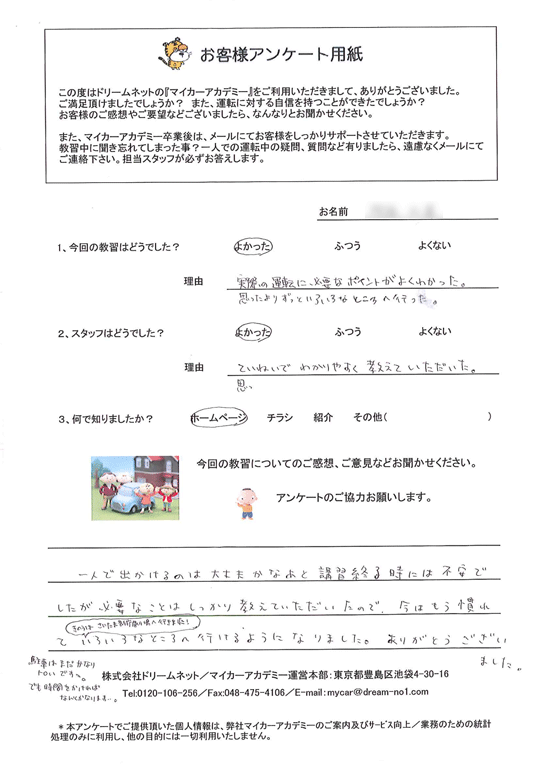 お客様アンケート用紙
この度はドリームネットの『マイカーアカデミー』をご利用いただきまして、ありがとうございました。
ご満足頂けましたでしょうか？ また、運転に対する自信を持つことができたでしょうか？
お客様のご感想やご要望などございましたら、なんなりとお聞かせください。
また、マイカーアカデミー卒業後は、メールにてお客様をしっかりサポートさせていただきます。
教習中に聞き忘れてしまった事？一人での運転中の疑問、質問など有りましたら、遠慮なくメールにて
ご連絡下さい。担当スタッフが必ずお答えします。
お名前
1、今回の教習はどうでした？ よかった ふつう よくない
理由 実際の運転に必要なポイントがよくわかった。
思ったよりずっといろいろなところへ行った。
2、スタッフはどうでした？ よかった ふつう よくない
理由 ていねいで わかりやすく 教えて いただいた。
思っ
3、何で知りましたか？ ホームページ チラシ 紹介 その他( )
今回の教習についてのご感想、ご意見などお聞かせください。
アンケートのご協力お願いします。
一人で出かけるのは大丈夫かなあと講習終る時には不安で
したが必要なことはしっかり教えていただいたので、今はもう慣れ
て いろいろなところへ行けるようになりました。ありがとうござい
ました。
駐車はまだかなり
でも時間をかければ
株式会社ドリームネット／マイカーアカデミー運営本部：東京都豊島区池袋4-30-16
Tel:0120-106-256／Fax:048-475-4106／E-mail：mycar@dream-no1.com
＊本アンケートでご提供頂いた個人情報は、弊社マイカーアカデミーのご案内及びサービス向上／業務のための統計
処理のみに利用し、他の目的には一切利用いたしません。